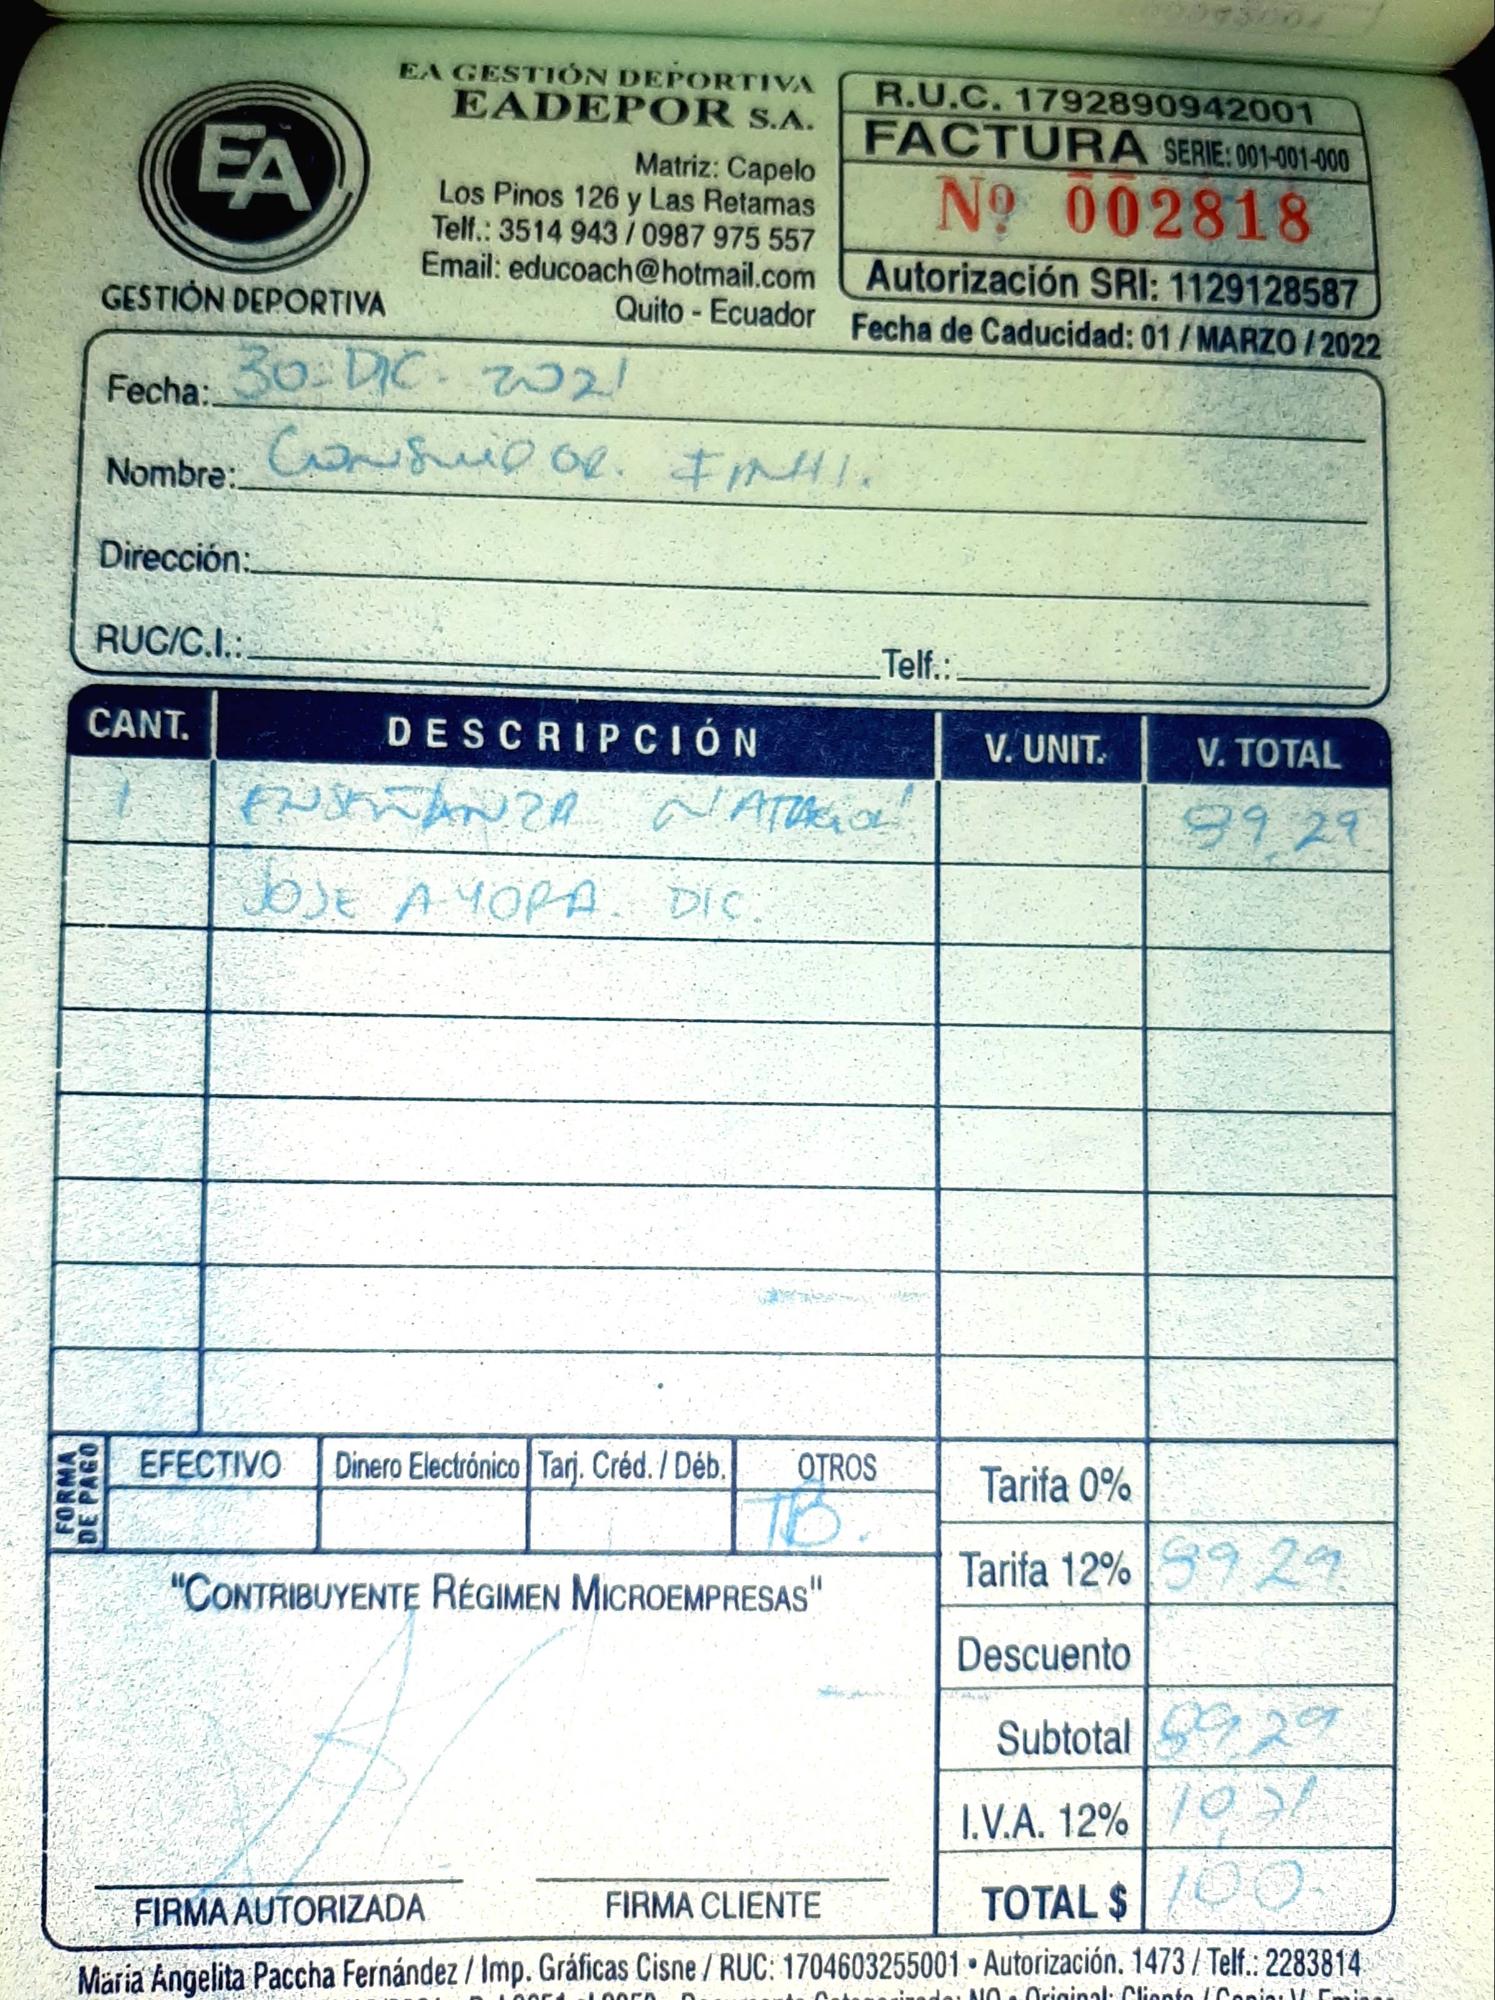 EA GESTIÓN DEPORTIVA
EADEPOR S.A.
EA
GESTIÓN DEPORTIVA
Matriz: Capelo
Los Pinos 126 y Las Retamas
Telf.: 3514 943 / 0987 975 557
Email: educoach@hotmail.com
Quito - Ecuador
R.U.C. 1792890942001
FACTURA SERIE: 001-001-000
Nº 002818
Autorización SRI: 1129128587
Fecha de Caducidad: 01 / MARZO / 2022
Fecha: 30-DIC. 2021
Nombre: CONSUMIDOR. FINAL.
Dirección:
RUC/C.I.: Telf.:
CANT. DESCRIPCIÓN V. UNIT. V. TOTAL
1 ENSEÑANZA NATACIÓN 89,29
JOSE AYORA. DIC.
FORMA DE PAGO EFECTIVO Dinero Electrónico Tarj. Créd. / Déb. OTROS
TB.
Tarifa 0%
Tarifa 12% 89,29
Descuento
Subtotal 89,29
I.V.A. 12% 10,71
TOTAL $ 100
"CONTRIBUYENTE RÉGIMEN MICROEMPRESAS"
FIRMA AUTORIZADA FIRMA CLIENTE
Maria Angelita Paccha Fernández / Imp. Gráficas Cisne / RUC: 1704603255001 • Autorización. 1473 / Telf.: 2283814